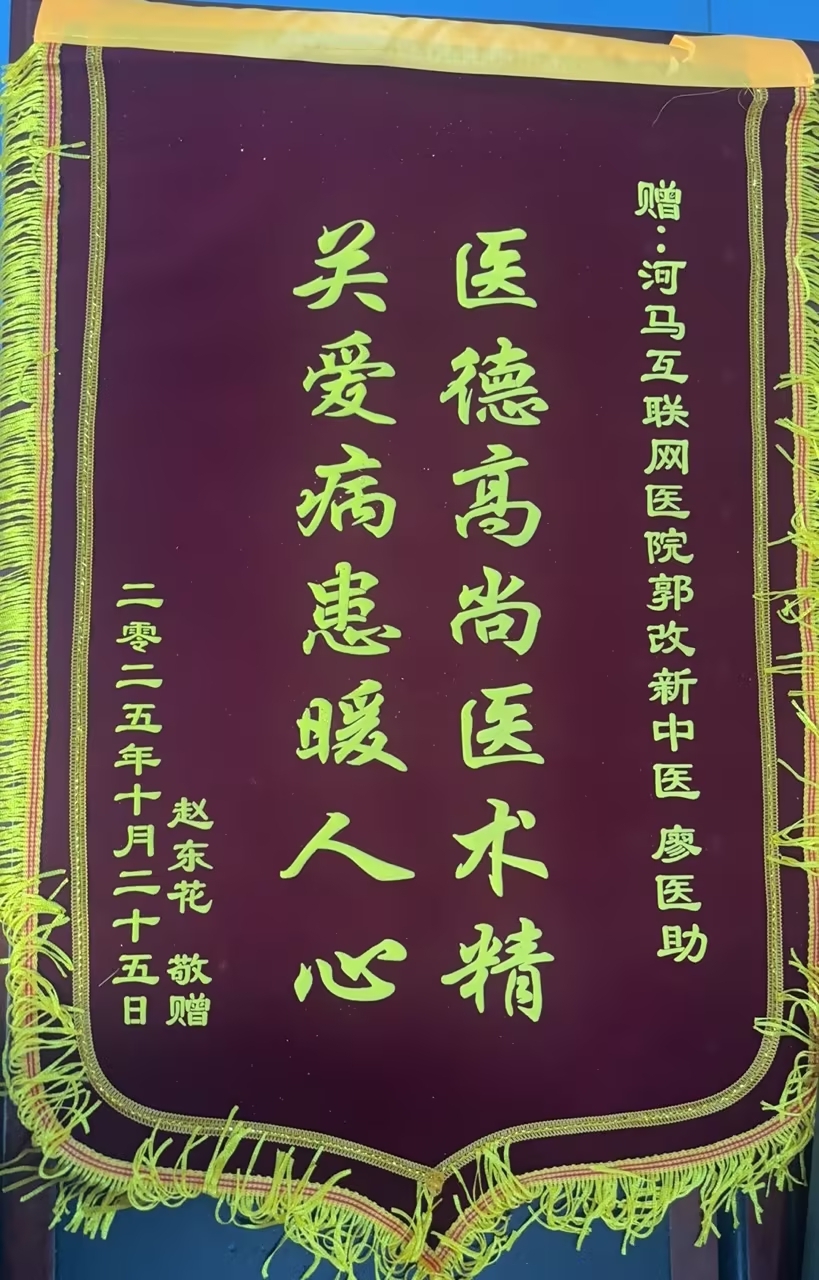 赠：河马互联网医院郭改新中医 廖医助
医德高尚医术精
关爱病患暖人心
赵东花 敬赠
二零二五年十月二十五日